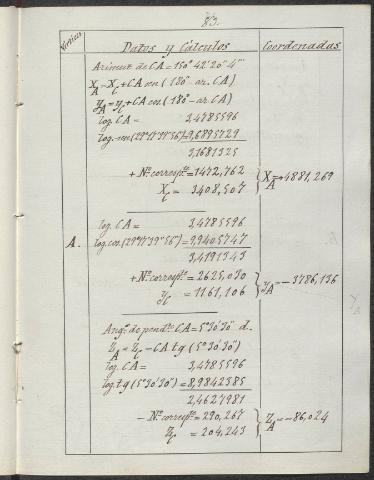 83.
Vértices
Datos y Cálculos
Coordenadas
Azimut de CA = 150° 42' 20" 4'''
X_A = X_C + CA sen (180° - az. CA)
Y_A = Y_C + CA cos (180° - az. CA)
log. CA = 3,4785596
log. sen (29°17'39"56''') = 9,6895729
3,1681325
+ N.º correspte. = 1472,762
X_C = 3408,507
X_A = +4881,269
A.
log. CA = 3,4785596
log. cos. (29°17'39"56''') = 9,9405747
3,4191343
+ N.º correspte. = 2625,030
Y_C = 1161,106
Y_A = -3786,136
Ang.º de pendte. CA = 5°30'30" d.
Z_A = Z_C - CA tg (5°30'30")
log. CA = 3,4785596
log. tg (5°30'30") = 8,9842385
2,4627981
- N.º correspte. = 290,267
Z_C = 204,243
Z_A = -86,024